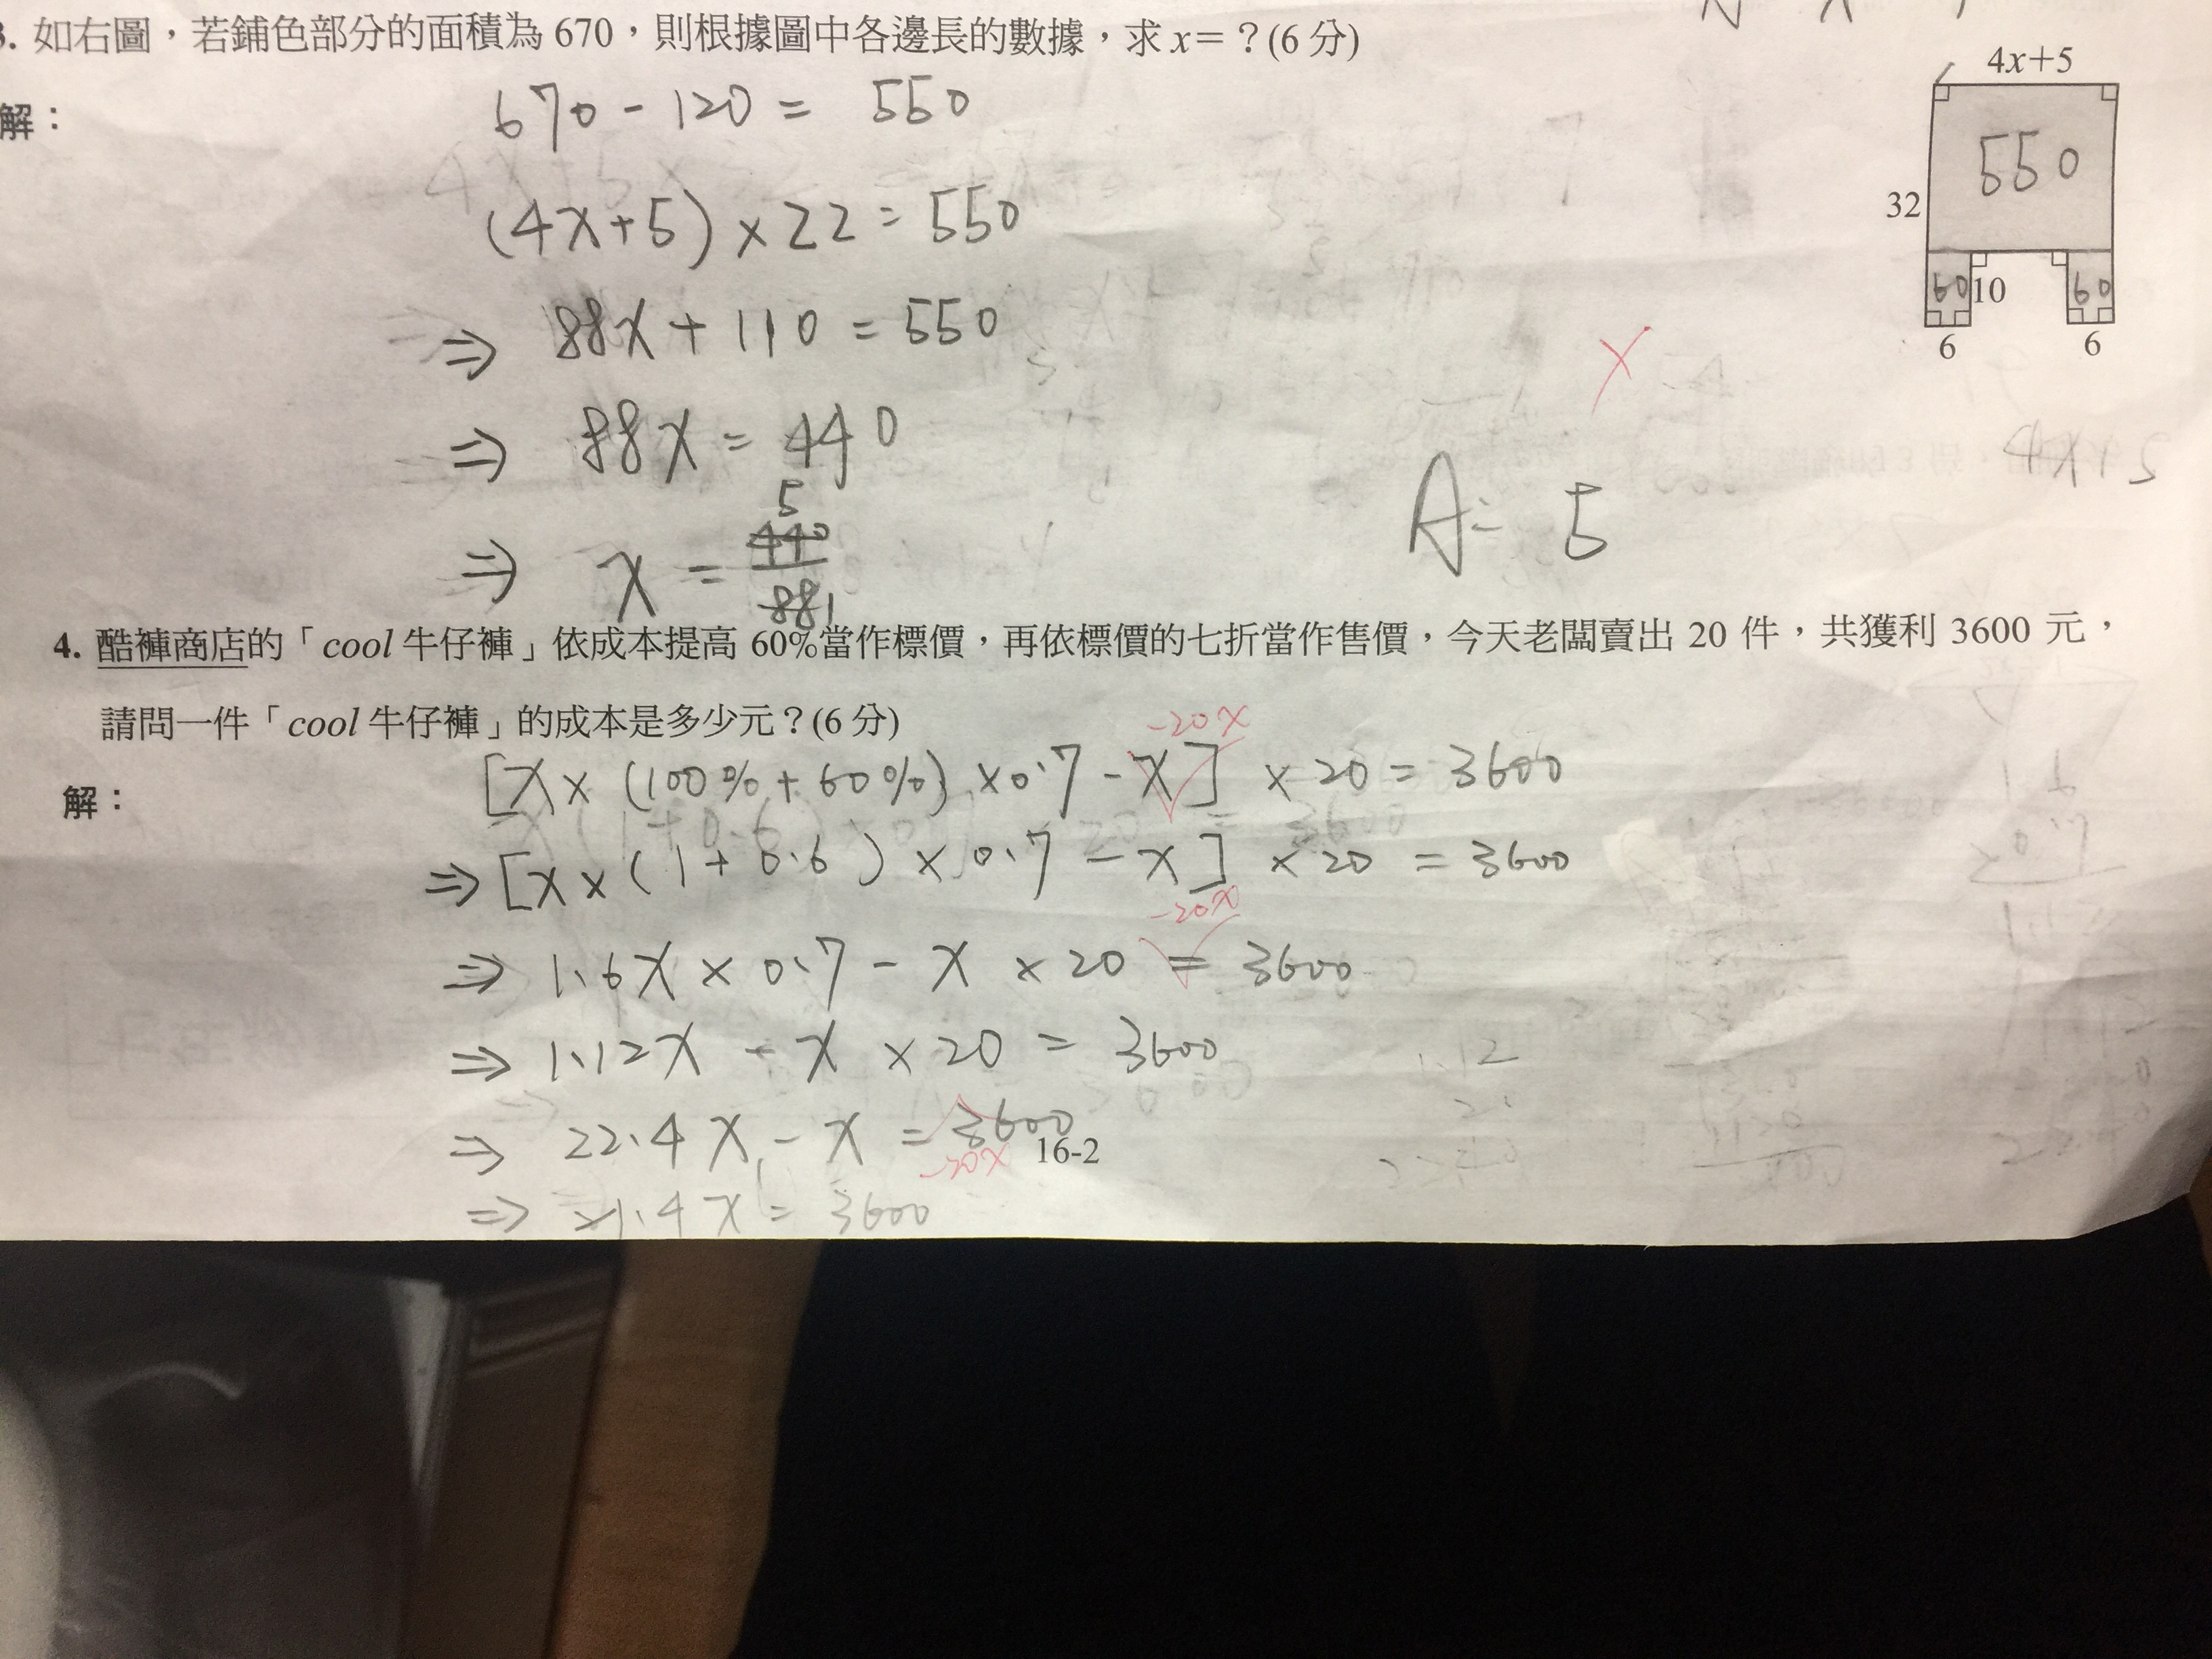 3. 如右圖，若鋪色部分的面積為 670，則根據圖中各邊長的數據，求 x=？(6 分)
解：
670 - 120 = 550
(4x+5) × 22 = 550
⇒ 88x + 110 = 550
⇒ 88x = 440
5
⇒ x = 440/88 1
A= 5
4x+5
550
32
60 10 60
6 6
4x+5
4. 酷褲商店的「cool 牛仔褲」依成本提高 60%當作標價，再依標價的七折當作售價，今天老闆賣出 20 件，共獲利 3600 元，
請問一件「cool 牛仔褲」的成本是多少元？(6 分)
解：
-20x
[x × (100% + 60%) × 0.7 - x] × 20 = 3600
⇒ [x × (1 + 0.6) × 0.7 - x] × 20 = 3600
-20x
⇒ 1.6x × 0.7 - x × 20 = 3600
⇒ 1.12x - x × 20 = 3600
⇒ 22.4x - x = 3600
-20x
16-2
⇒ 21.4x = 3600
1.12